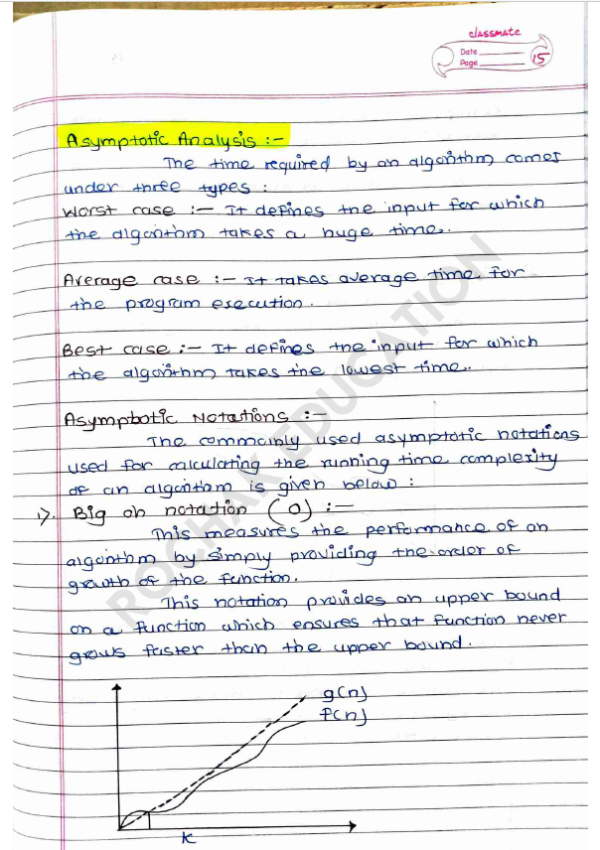 classmate
Date
Page 15
Asymptotic Analysis :-
The time required by an algorithm comes
under three types :
Worst case :- It defines the input for which
the algorithm takes a huge time.
Average case :- It takes average time for
the program execution.
Best case :- It defines the input for which
the algorithm takes the lowest time.
Asymptotic Notations :-
The commonly used asymptotic notations
used for calculating the running time complexity
of an algorithm is given below :
1). Big oh notation (O) :-
This measures the performance of an
algorithm by simply providing the order of
growth of the function.
This notation provides an upper bound
on a function which ensures that function never
grows faster than the upper bound.
g(n)
f(n)
K
ROCHAK EDUCATION